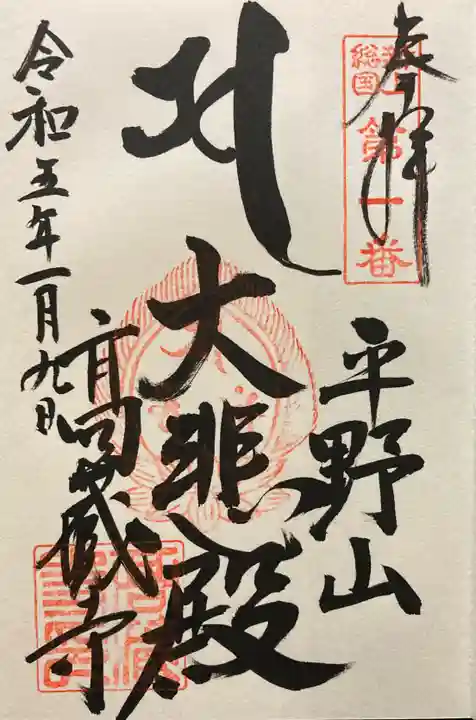 奉拝
新上総国
第一番
平野山
大悲殿
令和五年一月九日
高蔵寺